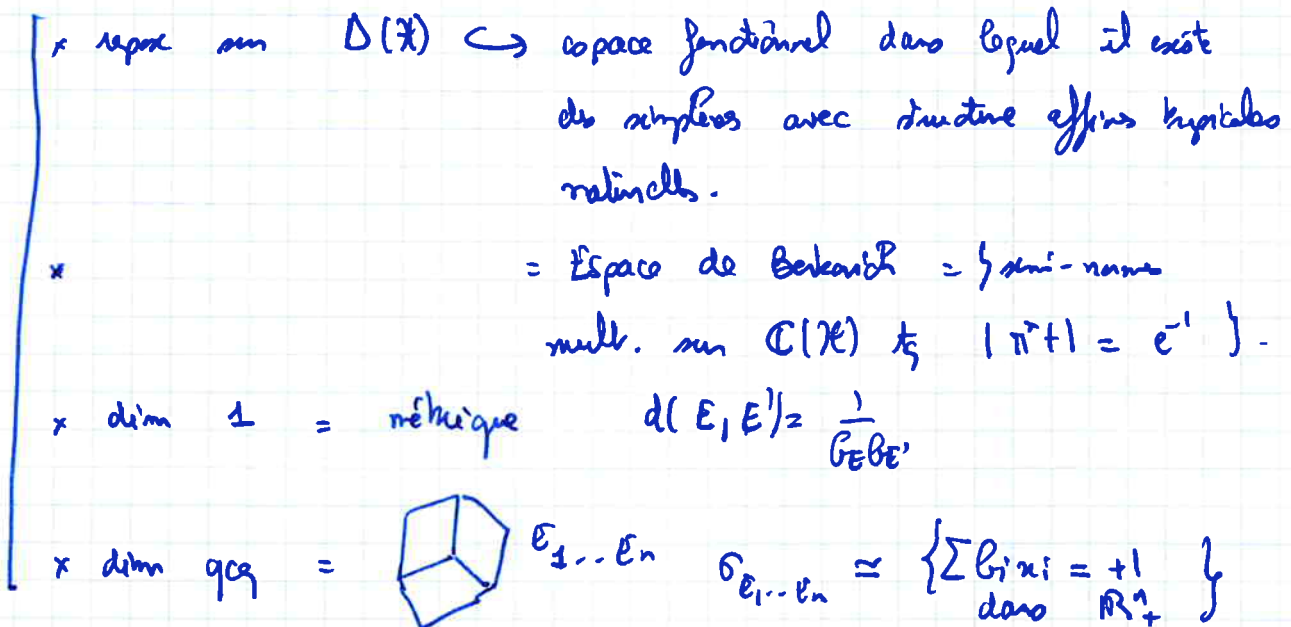 × repose sur Δ(𝒳) ↪ espace fonctionnel dans lequel il existe
des simplexes avec structure affines
rationnelles.
× = Espace de Berkovich = { semi-normes
mult. sur ℂ(𝒳) tq |π*t| = e⁻¹ }.
× dim 1 = métrique d(E, E') = 1/(b_E b_E')
× dim qcq = E₁..Eₙ σ_{E₁..Eₙ} ≃ { Σ bᵢxᵢ = +1
dans ℝⁿ₊ }